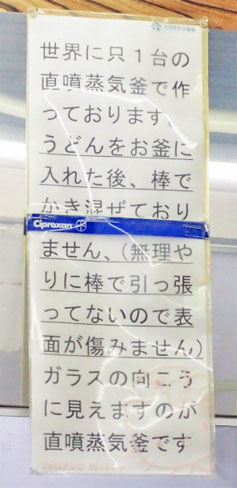 世界に只1台の
直噴蒸気釜で作
っております。
うどんをお釜に
入れた後、棒で
かき混ぜており
Ciproxan
ません、(無理や
りに棒で引っ張
ってないので表
面が傷みません)
ガラスの向こう
に見えますのが
直噴蒸気釜です